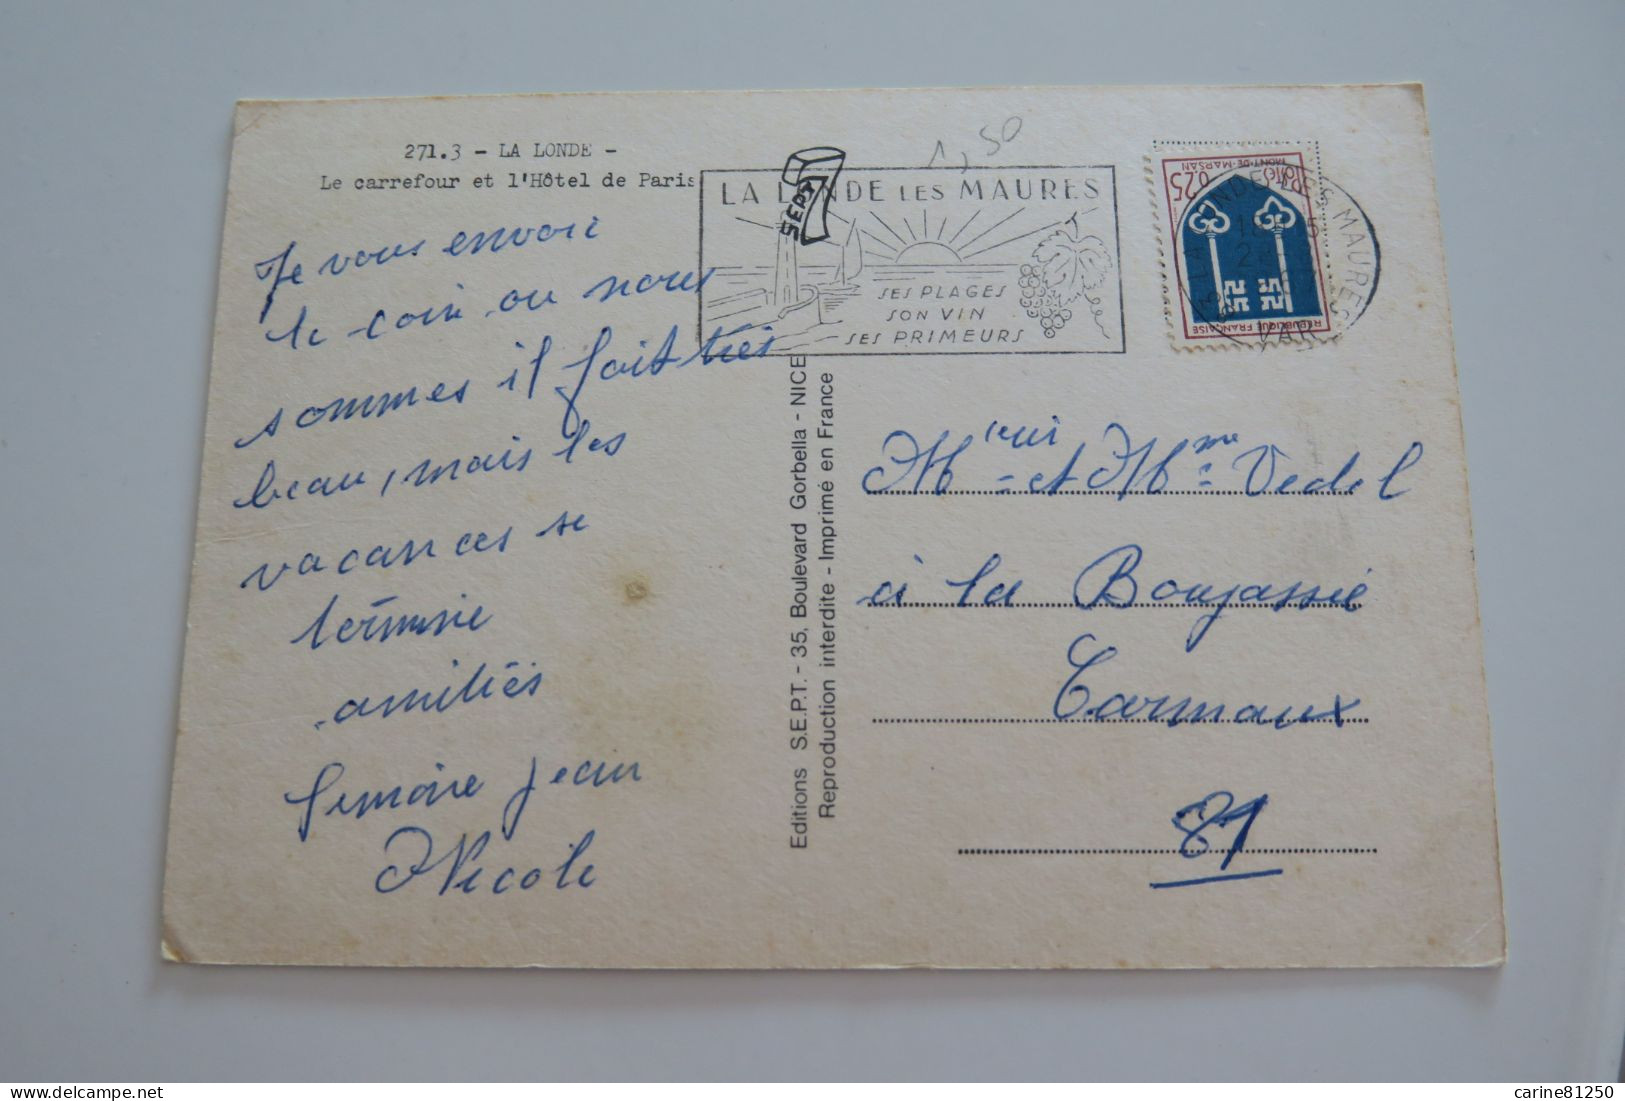 271.3 - LA LONDE -
Le carrefour et l'Hôtel de Paris
Je vous envoie
le coin ou nous
sommes il fait très
beau, mais les
vacances se
termine
amitiés
Simone Jean
Nicole
SEPT
1,50
LA LONDE LES MAURES
SES PLAGES
SON VIN
SES PRIMEURS
MONT-DE-MARSAN
0,25
REPUBLIQUE FRANÇAISE
83 LA LONDE LES MAURES
VAR
Editions S.E.P.T. - 35, Boulevard Gorbella - NICE
Reproduction interdite - Imprimé en France
Mr et Mme Vedel
à la Boujassié
Carmaux
81
carine81250